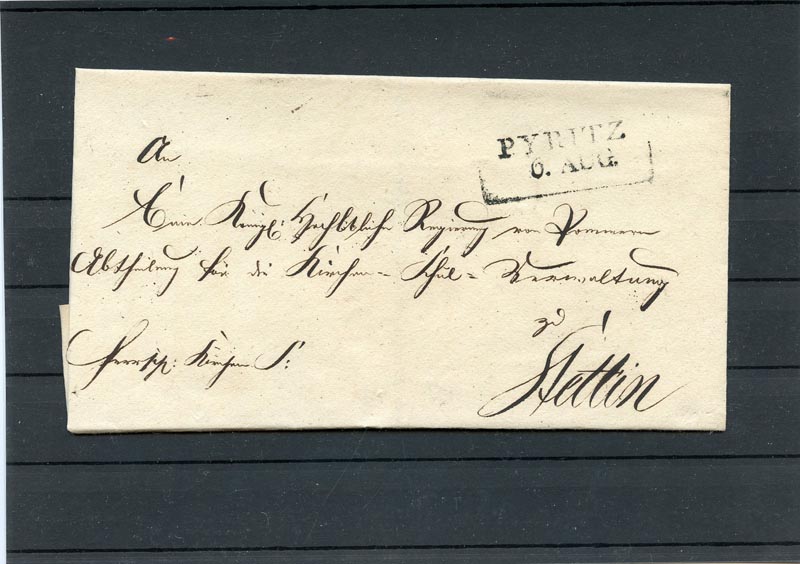 PYRITZ
6. AUG.
An
Eine Königl: Hochlöbliche Regierung von Pommern
Abtheilung für die Kirchen- Schul- Verwaltung
zu
Kirchen S:
Stettin